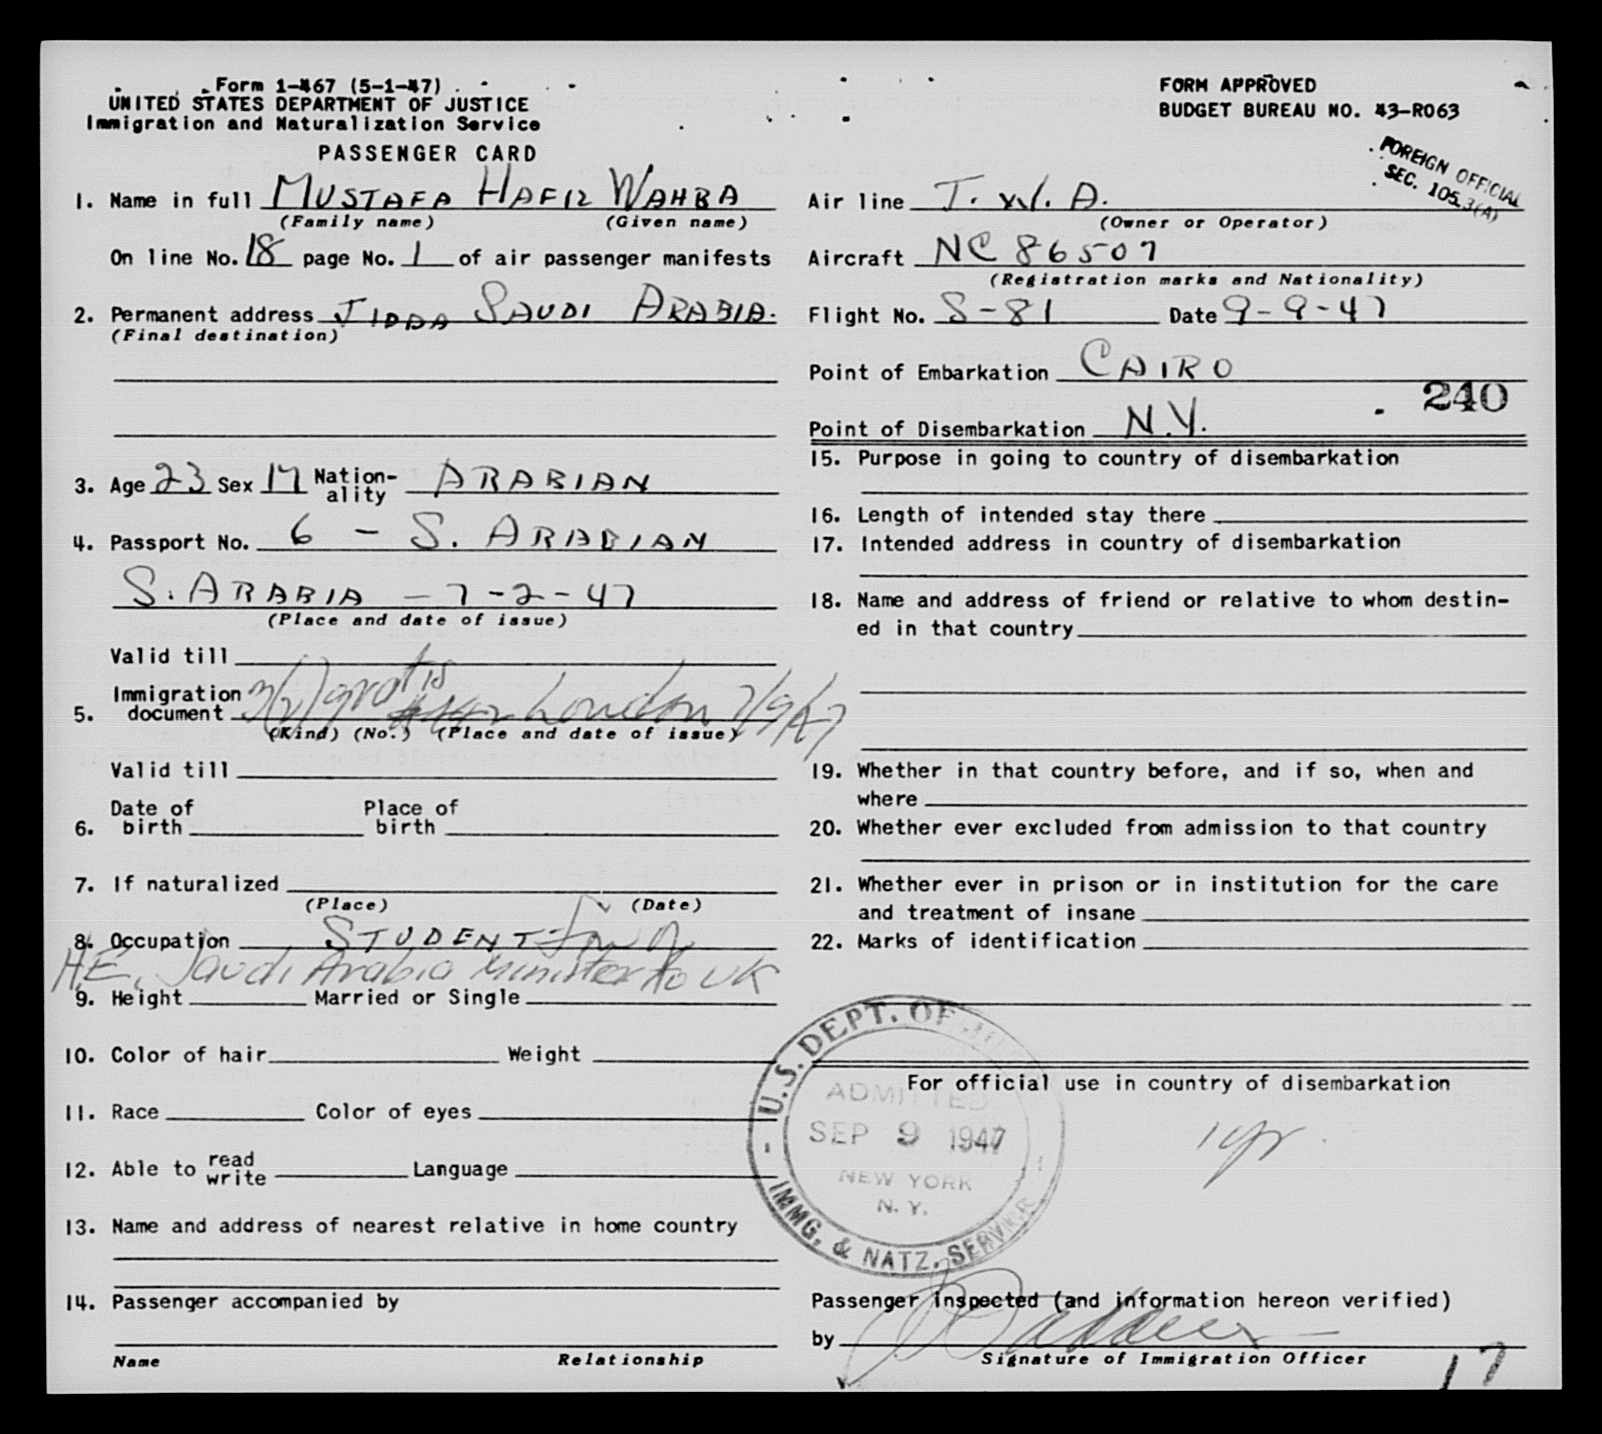 Form 1-467 (5-1-47)
UNITED STATES DEPARTMENT OF JUSTICE
Immigration and Naturalization Service
PASSENGER CARD
FORM APPROVED
BUDGET BUREAU NO. 43-R063
FOREIGN OFFICIAL
SEC. 105.3(A)
1. Name in full MUSTAFA HAFIZ WAHBA
(Family name) (Given name)
On line No. 18 page No. 1 of air passenger manifests
2. Permanent address JIDDA SAUDI ARABIA.
(Final destination)
3. Age 23 Sex M Nation-ality ARABIAN
4. Passport No. 6 - S. ARABIAN
S. ARABIA - 7-2-47
(Place and date of issue)
Valid till
5. Immigration document 3(2) gratis London 7/9/47
(Kind) (No.) (Place and date of issue)
Valid till
6. Date of birth Place of birth
7. If naturalized
(Place) (Date)
8. Occupation STUDENT
H.E. Saudi Arabia Minister to UK
9. Height Married or Single
10. Color of hair Weight
11. Race Color of eyes
12. Able to read write Language
13. Name and address of nearest relative in home country
14. Passenger accompanied by
Name Relationship
Air line T.W.A.
(Owner or Operator)
Aircraft NC 86507
(Registration marks and Nationality)
Flight No. S-81 Date 9-9-47
Point of Embarkation CAIRO
240
Point of Disembarkation N.Y.
15. Purpose in going to country of disembarkation
16. Length of intended stay there
17. Intended address in country of disembarkation
18. Name and address of friend or relative to whom destin-
ed in that country
19. Whether in that country before, and if so, when and
where
20. Whether ever excluded from admission to that country
21. Whether ever in prison or in institution for the care
and treatment of insane
22. Marks of identification
For official use in country of disembarkation
1 yr.
U.S. DEPT. OF JUSTICE
ADMITTED
SEP 9 1947
NEW YORK
N. Y.
IMMG. & NATZ. SERVICE
Passenger inspected (and information hereon verified)
by
Signature of Immigration Officer
17